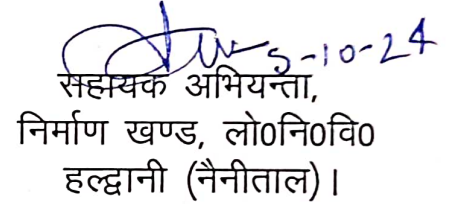 5-10-24
सहायक अभियन्ता,
निर्माण खण्ड, लो0नि0वि0
हल्द्वानी (नैनीताल)।